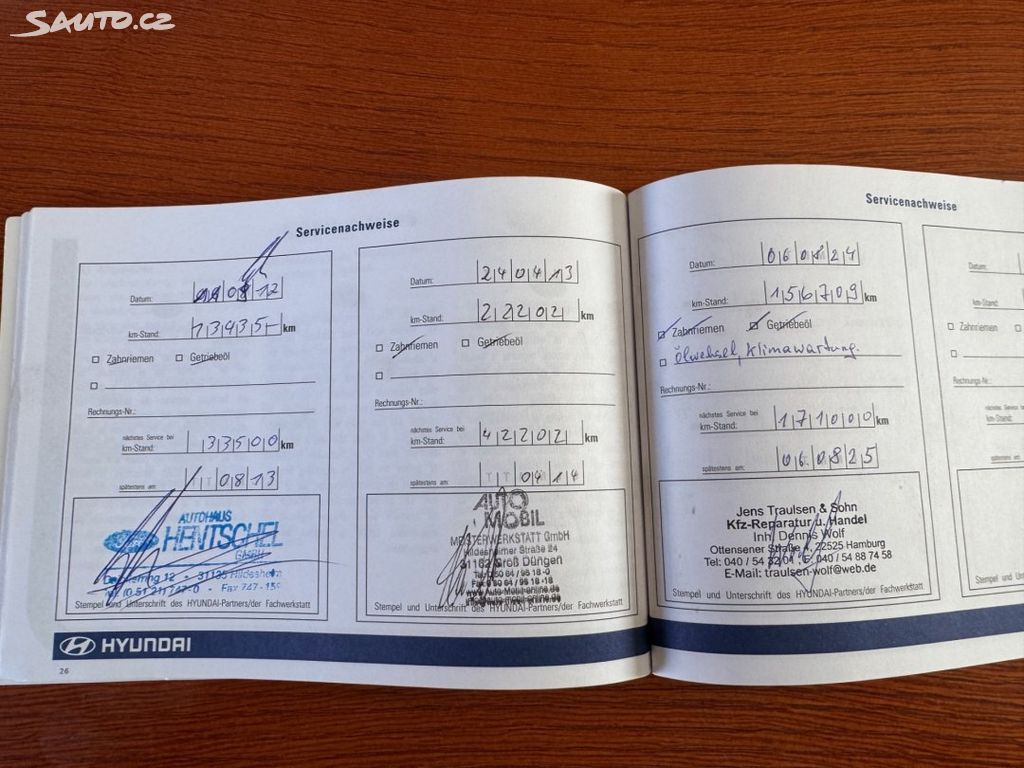 Sauto.cz
Servicenachweise
Datum: 08 12
km-Stand: 13435,- km
Zahnriemen Getriebeöl
Rechnungs-Nr.:
nächstes Service bei
km-Stand: 33500 km
spätestens am: T 08 13
AUTOHAUS
HENTSCHEL
GmbH
12 • 31135 Hildesheim
(0 51 21) 747-0 • Fax 747-159
Stempel und Unterschrift des HYUNDAI-Partners/der Fachwerkstatt
Datum: 24 04 13
km-Stand: 22202 km
Zahnriemen Getriebeöl
Rechnungs-Nr.:
nächstes Service bei
km-Stand: 42202 km
spätestens am: T T 04 14
AUTO
MOBIL
MEISTERWERKSTATT GmbH
Hildesheimer Straße 24
31162 Groß Düngen
Tel. 0 50 64 / 95 18 -0
Fax 0 50 64 / 95 18 -18
www.Auto-Mobil-online.de
Stempel und Unterschrift des HYUNDAI-Partners/der Fachwerkstatt
HYUNDAI
26
Servicenachweise
Datum: 06 08 24
km-Stand: 156709 km
Zahnriemen Getriebeöl
Ölwechsel, Klimawartung.
Rechnungs-Nr.:
nächstes Service bei
km-Stand: 171000 km
spätestens am: 06.08 25
Jens Traulsen & Sohn
Kfz-Reparatur u. Handel
Inh. Dennis Wolf
Ottensener Straße 4, 22525 Hamburg
Tel: 040 / 54 88 74 58
E-Mail: traulsen-wolf@web.de
Stempel und Unterschrift des HYUNDAI-Partners/der Fachwerkstatt
Datum:
km-Stand:
Zahnriemen
Rechnungs-Nr.:
nächstes Service bei
km-Stand:
spätestens am:
Stempel und Unterschrift